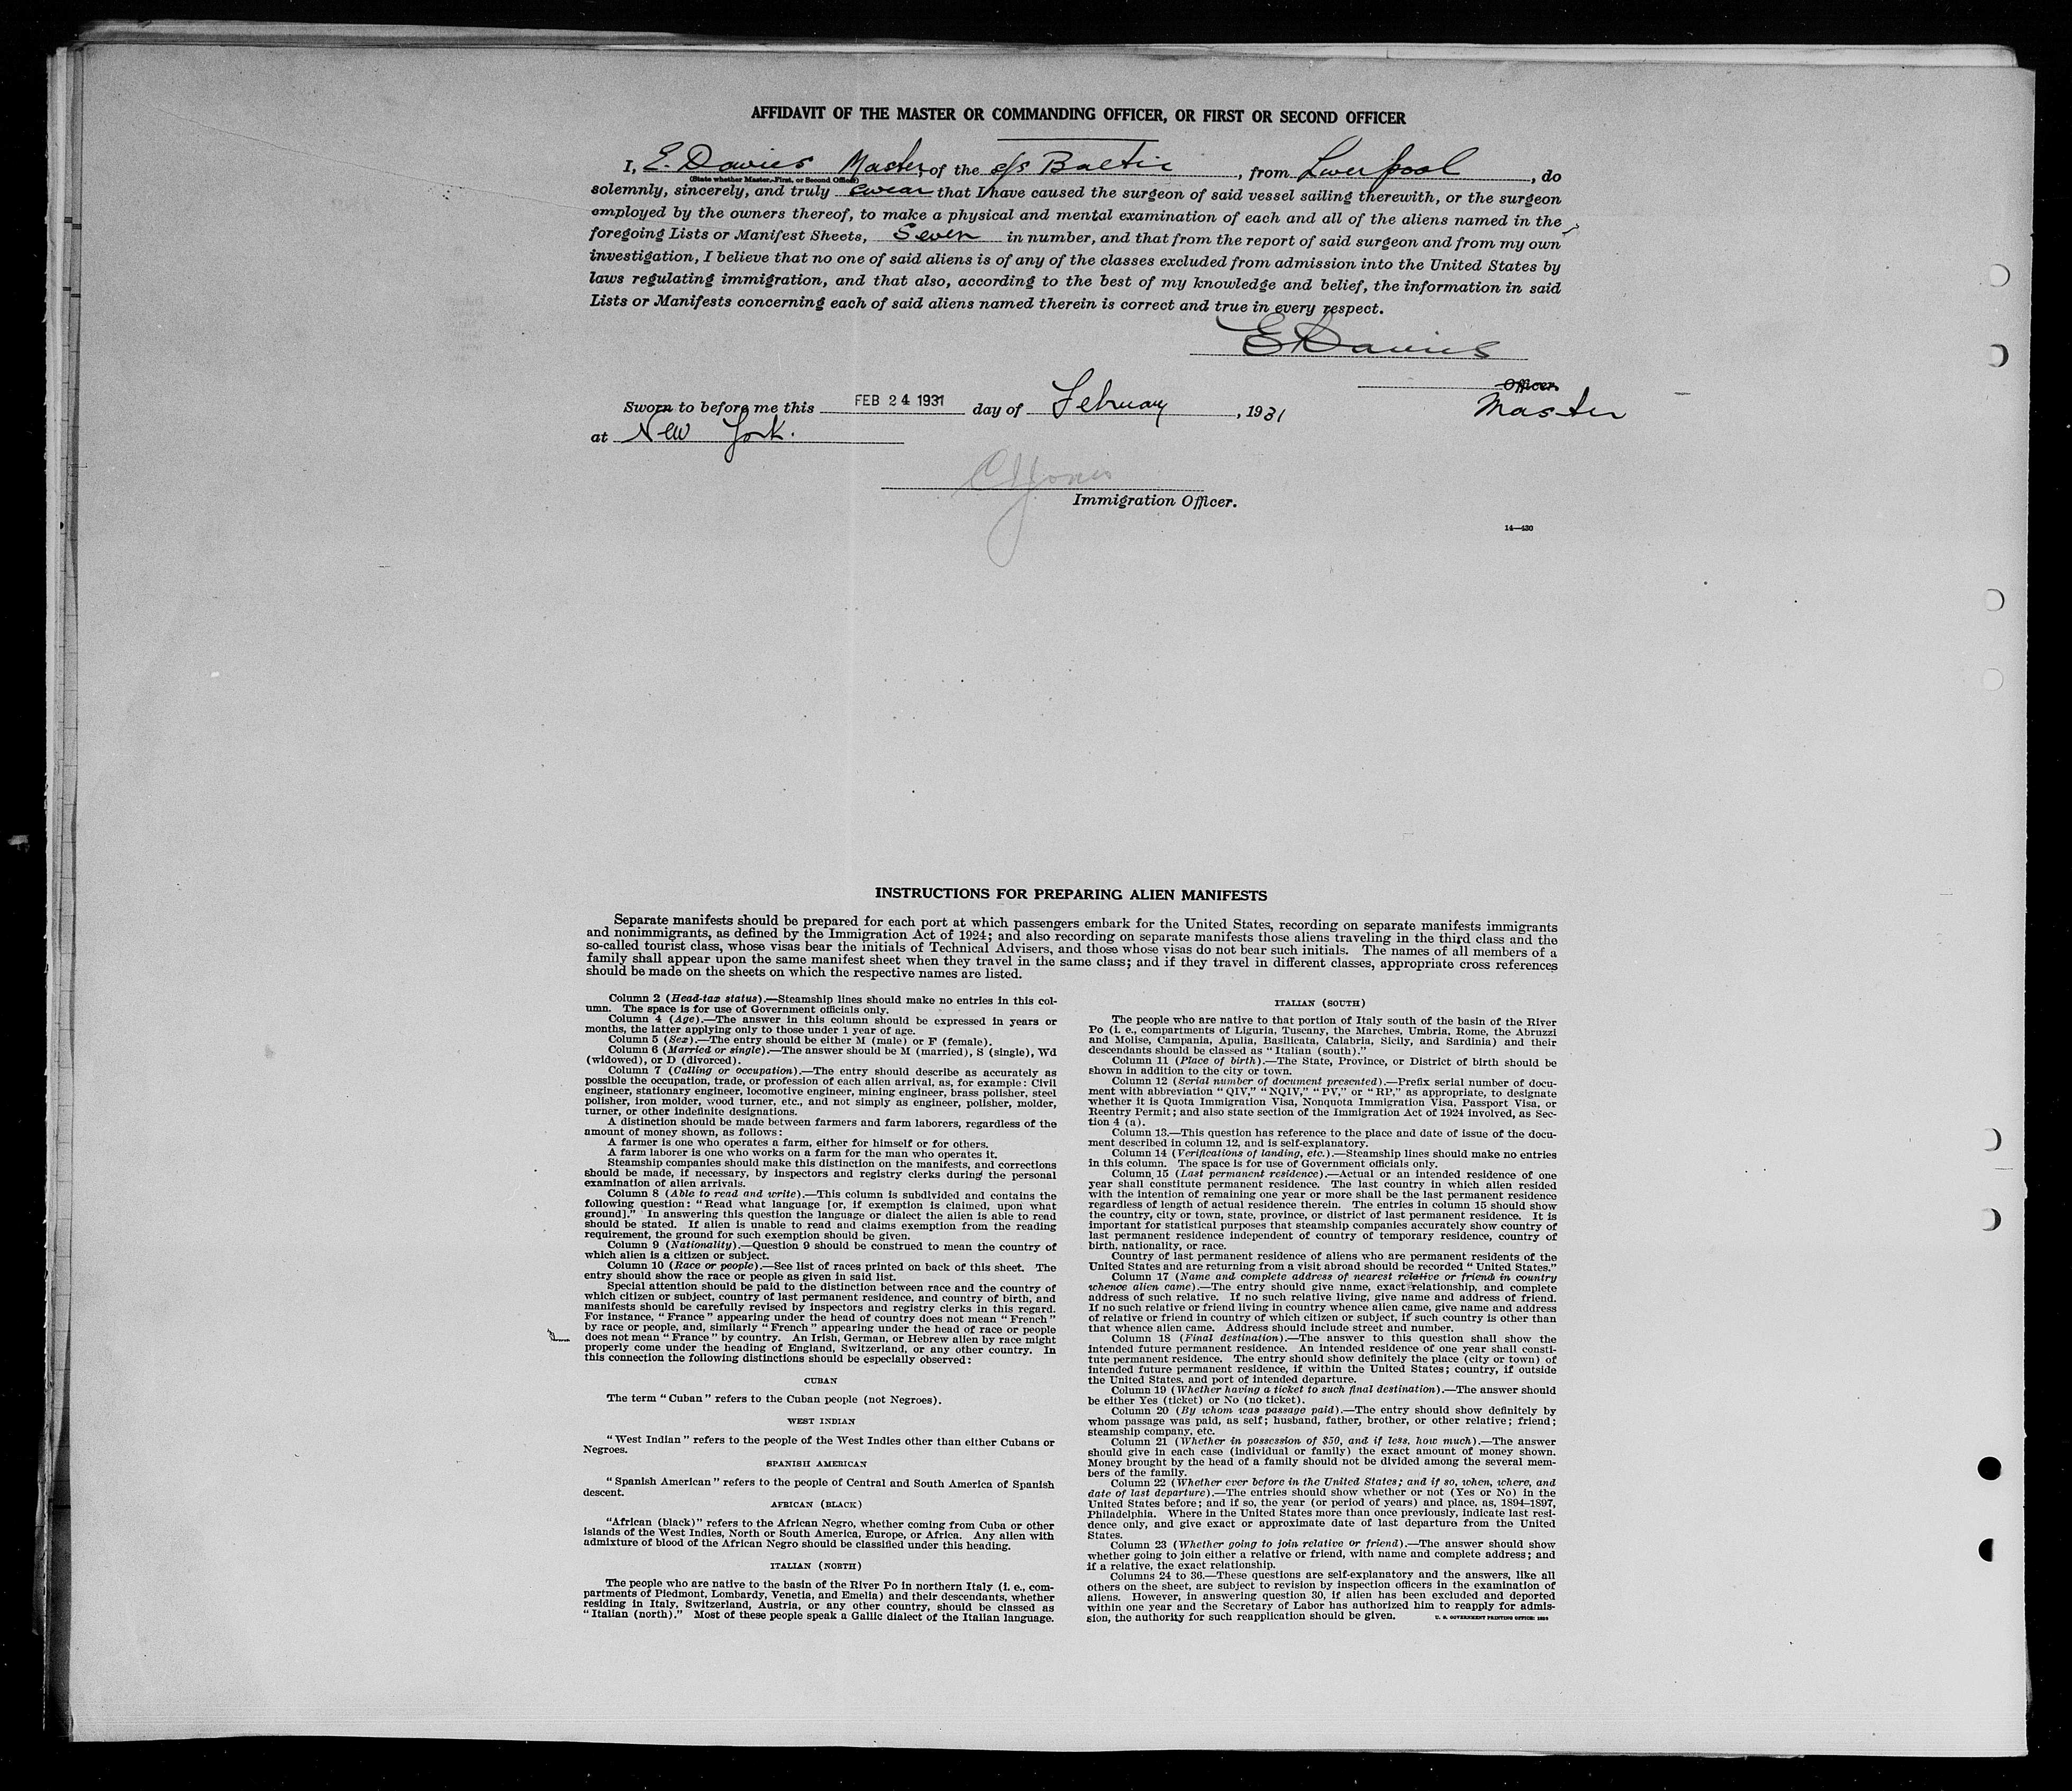 AFFIDAVIT OF THE MASTER OR COMMANDING OFFICER, OR FIRST OR SECOND OFFICER
I, E. Davies Master, of the s/s Baltic, from Liverpool, do
(State whether Master, First, or Second Officer)
solemnly, sincerely, and truly swear that I have caused the surgeon of said vessel sailing therewith, or the surgeon
employed by the owners thereof, to make a physical and mental examination of each and all of the aliens named in the
foregoing Lists or Manifest Sheets, Seven in number, and that from the report of said surgeon and from my own
investigation, I believe that no one of said aliens is of any of the classes excluded from admission into the United States by
laws regulating immigration, and that also, according to the best of my knowledge and belief, the information in said
Lists or Manifests concerning each of said aliens named therein is correct and true in every respect.
E Davies
Officer.
Master
Sworn to before me this FEB 24 1931 day of February, 1931
at New York.
Jones
Immigration Officer.
14—430
INSTRUCTIONS FOR PREPARING ALIEN MANIFESTS
Separate manifests should be prepared for each port at which passengers embark for the United States, recording on separate manifests immigrants
and nonimmigrants, as defined by the Immigration Act of 1924; and also recording on separate manifests those aliens traveling in the third class and the
so-called tourist class, whose visas bear the initials of Technical Advisers, and those whose visas do not bear such initials. The names of all members of a
family shall appear upon the same manifest sheet when they travel in the same class; and if they travel in different classes, appropriate cross references
should be made on the sheets on which the respective names are listed.
Column 2 (Head-tax status).—Steamship lines should make no entries in this col-
umn. The space is for use of Government officials only.
Column 4 (Age).—The answer in this column should be expressed in years or
months, the latter applying only to those under 1 year of age.
Column 5 (Sex).—The entry should be either M (male) or F (female).
Column 6 (Married or single).—The answer should be M (married), S (single), Wd
(widowed), or D (divorced).
Column 7 (Calling or occupation).—The entry should describe as accurately as
possible the occupation, trade, or profession of each alien arrival, as, for example: Civil
engineer, stationary engineer, locomotive engineer, mining engineer, brass polisher, steel
polisher, iron molder, wood turner, etc., and not simply as engineer, polisher, molder,
turner, or other indefinite designations.
A distinction should be made between farmers and farm laborers, regardless of the
amount of money shown, as follows:
A farmer is one who operates a farm, either for himself or for others.
A farm laborer is one who works on a farm for the man who operates it.
Steamship companies should make this distinction on the manifests, and corrections
should be made, if necessary, by inspectors and registry clerks during the personal
examination of alien arrivals.
Column 8 (Able to read and write).—This column is subdivided and contains the
following question: "Read what language [or, if exemption is claimed, upon what
ground]." In answering this question the language or dialect the alien is able to read
should be stated. If alien is unable to read and claims exemption from the reading
requirement, the ground for such exemption should be given.
Column 9 (Nationality).—Question 9 should be construed to mean the country of
which alien is a citizen or subject.
Column 10 (Race or people).—See list of races printed on back of this sheet. The
entry should show the race or people as given in said list.
Special attention should be paid to the distinction between race and the country of
which citizen or subject, country of last permanent residence, and country of birth, and
manifests should be carefully revised by inspectors and registry clerks in this regard.
For instance, "France" appearing under the head of country does not mean "French"
by race or people, and, similarly "French" appearing under the head of race or people
does not mean "France" by country. An Irish, German, or Hebrew alien by race might
properly come under the heading of England, Switzerland, or any other country. In
this connection the following distinctions should be especially observed:
CUBAN
The term "Cuban" refers to the Cuban people (not Negroes).
WEST INDIAN
"West Indian" refers to the people of the West Indies other than either Cubans or
Negroes.
SPANISH AMERICAN
"Spanish American" refers to the people of Central and South America of Spanish
descent.
AFRICAN (BLACK)
"African (black)" refers to the African Negro, whether coming from Cuba or other
islands of the West Indies, North or South America, Europe, or Africa. Any alien with
admixture of blood of the African Negro should be classified under this heading.
ITALIAN (NORTH)
The people who are native to the basin of the River Po in northern Italy (i. e., com-
partments of Piedmont, Lombardy, Venetia, and Emelia) and their descendants, whether
residing in Italy, Switzerland, Austria, or any other country, should be classed as
"Italian (north)." Most of these people speak a Gallic dialect of the Italian language.
ITALIAN (SOUTH)
The people who are native to that portion of Italy south of the basin of the River
Po (i. e., compartments of Liguria, Tuscany, the Marches, Umbria, Rome, the Abruzzi
and Molise, Campania, Apulia, Basilicata, Calabria, Sicily, and Sardinia) and their
descendants should be classed as "Italian (south)."
Column 11 (Place of birth).—The State, Province, or District of birth should be
shown in addition to the city or town.
Column 12 (Serial number of document presented).—Prefix serial number of docu-
ment with abbreviation "QIV," "NQIV," "PV," or "RP," as appropriate, to designate
whether it is Quota Immigration Visa, Nonquota Immigration Visa, Passport Visa, or
Reentry Permit; and also state section of the Immigration Act of 1924 involved, as Sec-
tion 4 (a).
Column 13.—This question has reference to the place and date of issue of the docu-
ment described in column 12, and is self-explanatory.
Column 14 (Verifications of landing, etc.).—Steamship lines should make no entries
in this column. The space is for use of Government officials only.
Column 15 (Last permanent residence).—Actual or an intended residence of one
year shall constitute permanent residence. The last country in which alien resided
with the intention of remaining one year or more shall be the last permanent residence
regardless of length of actual residence therein. The entries in column 15 should show
the country, city or town, state, province, or district of last permanent residence. It is
important for statistical purposes that steamship companies accurately show country of
last permanent residence independent of country of temporary residence, country of
birth, nationality, or race.
Country of last permanent residence of aliens who are permanent residents of the
United States and are returning from a visit abroad should be recorded "United States."
Column 17 (Name and complete address of nearest relative or friend in country
whence alien came).—The entry should give name, exact relationship, and complete
address of such relative. If no such relative living, give name and address of friend.
If no such relative or friend living in country whence alien came, give name and address
of relative or friend in country of which citizen or subject, if such country is other than
that whence alien came. Address should include street and number.
Column 18 (Final destination).—The answer to this question shall show the
intended future permanent residence. An intended residence of one year shall consti-
tute permanent residence. The entry should show definitely the place (city or town) of
intended future permanent residence, if within the United States; country, if outside
the United States, and port of intended departure.
Column 19 (Whether having a ticket to such final destination).—The answer should
be either Yes (ticket) or No (no ticket).
Column 20 (By whom was passage paid).—The entry should show definitely by
whom passage was paid, as self; husband, father, brother, or other relative; friend;
steamship company, etc.
Column 21 (Whether in possession of $50, and if less, how much).—The answer
should give in each case (individual or family) the exact amount of money shown.
Money brought by the head of a family should not be divided among the several mem-
bers of the family.
Column 22 (Whether ever before in the United States; and if so, when, where, and
date of last departure).—The entries should show whether or not (Yes or No) in the
United States before; and if so, the year (or period of years) and place, as, 1894–1897,
Philadelphia. Where in the United States more than once previously, indicate last resi-
dence only, and give exact or approximate date of last departure from the United
States.
Column 23 (Whether going to join relative or friend).—The answer should show
whether going to join either a relative or friend, with name and complete address; and
if a relative, the exact relationship.
Columns 24 to 36.—These questions are self-explanatory and the answers, like all
others on the sheet, are subject to revision by inspection officers in the examination of
aliens. However, in answering question 30, if alien has been excluded and deported
within one year and the Secretary of Labor has authorized him to reapply for admis-
sion, the authority for such reapplication should be given.
U. S. GOVERNMENT PRINTING OFFICE: